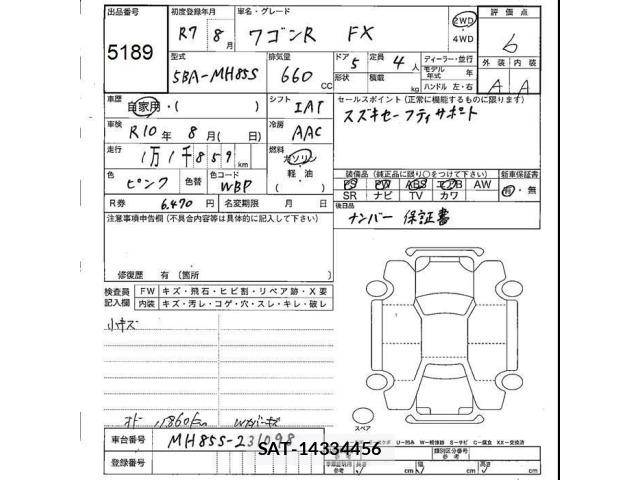 出品番号 初度登録年月 車名・グレード 評価点
5189 R7年 8月 ワゴンR FX 2WD ・4WD 6
型式 排気量 ドア 5 定員 4人 ディーラー・並行 外装 内装
5BA-MH85S 660 cc 形状 積載 kg モデル年式 年 ハンドル 左・右 A A
車歴 自家用・( ) シフト IAT セールスポイント(正常に機能するものに限ります)
車検 R10年 8月( 日) 冷房 AAC スズキセーフティサポート
走行 1万1千859km 燃料 ガソリン 軽油 ( )
色 ピンク 色替 色コード WBP 装備品(純正品に限り○をつけて下さい) 新車保証書
PS PW ABS エアB AW 有・無
R券 6,470円 名変期限 月 日 SR ナビ TV カワ
注意事項申告欄(不具合内容等は具体的に記入して下さい) 後日品
ナンバー 保証書
修復歴 有(箇所 )
検査員記入欄 FW キズ・飛石・ヒビ割・リペア跡・X要
内装 キズ・汚レ・コゲ・穴・スレ・キレ・破レ
小キズ
オドー 11860km Wガキズ スペア
車台番号 MH85S-231098
SAT-14334456
登録番号 類別区分番号 長さ cm 幅 cm 高さ cm